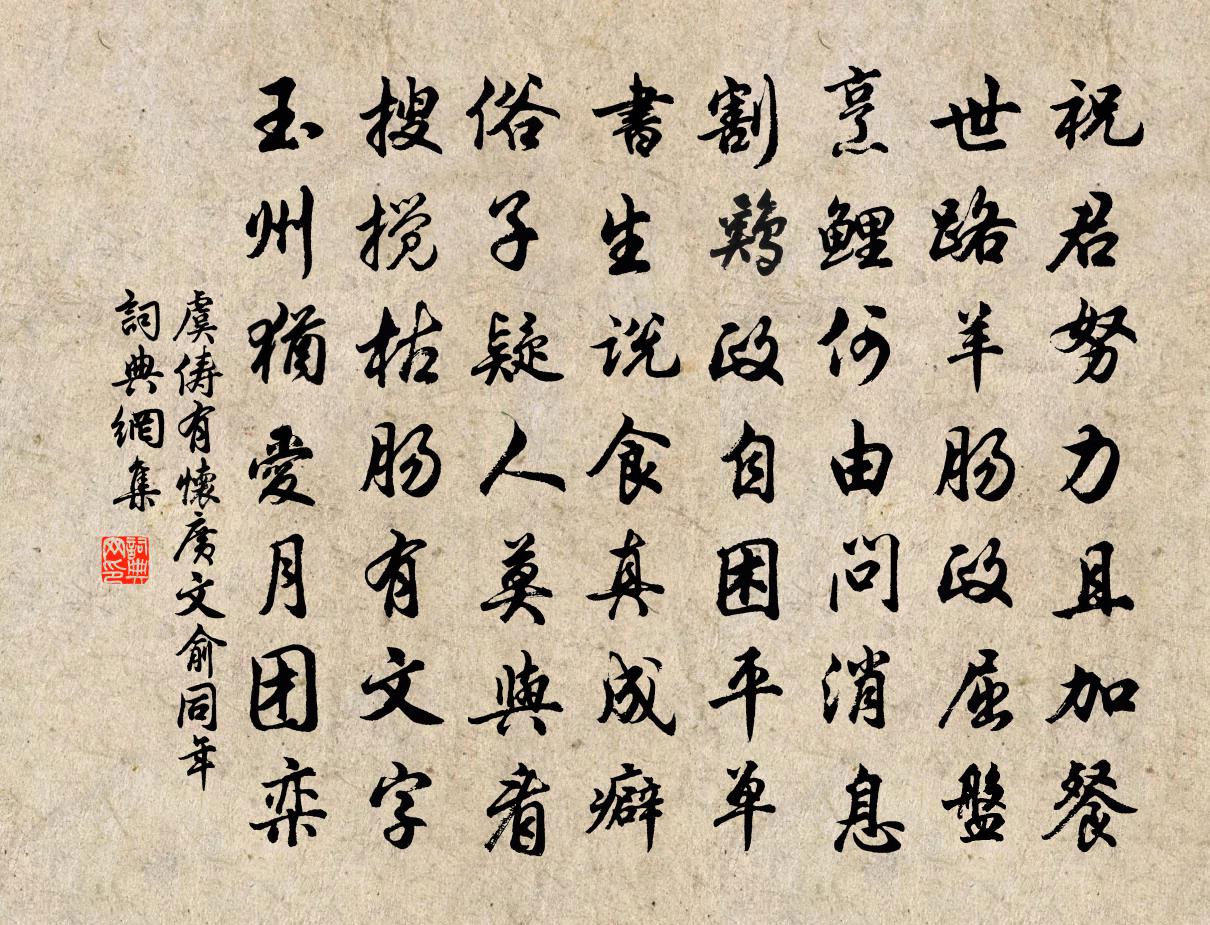 祝君努力且加餐
世路羊肠政屈盤
烹鲤何由问消息
割鷄政自困平单
書生说食真成癖
俗子疑人莫與看
搜搅枯肠有文字
玉州猶愛月团栾
虞俦有懷廣文俞同年
詞典網集
詞典网印